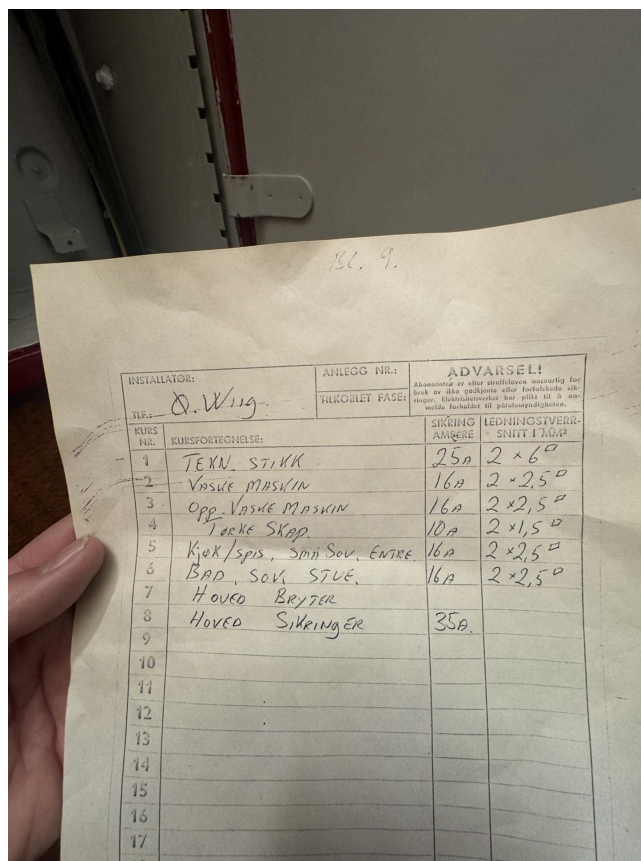 BL. 9.
INSTALLATØR:
Ø. Wiig.
TLF.:
ANLEGG NR.:
TILKOBLET FASE:
ADVARSEL!
Abonnenten er etter straffeloven ansvarlig for
bruk av ikke godkjente eller forfalskede sik-
ringer. Elektrisitetsverket har plikt til å an-
melde forholdet til påtalemyndigheten.
KURS NR. KURSFORTEGNELSE: SIKRING AMPÈRE LEDNINGSTVERR- SNITT I MM²
1 TEKN. STIKK 25A 2 × 6 □
2 VASKE MASKIN 16A 2 × 2,5 □
3 OPP. VASKE MASKIN 16A 2 × 2,5 □
4 TØRKE SKAP 10A 2 × 1,5 □
5 KJØK/SPIS, SMÅ SOV, ENTRE. 16A 2 × 2,5 □
6 BAD, SOV, STUE. 16A 2 × 2,5 □
7 HOVED BRYTER
8 HOVED SIKRINGER 35A.
9
10
11
12
13
14
15
16
17